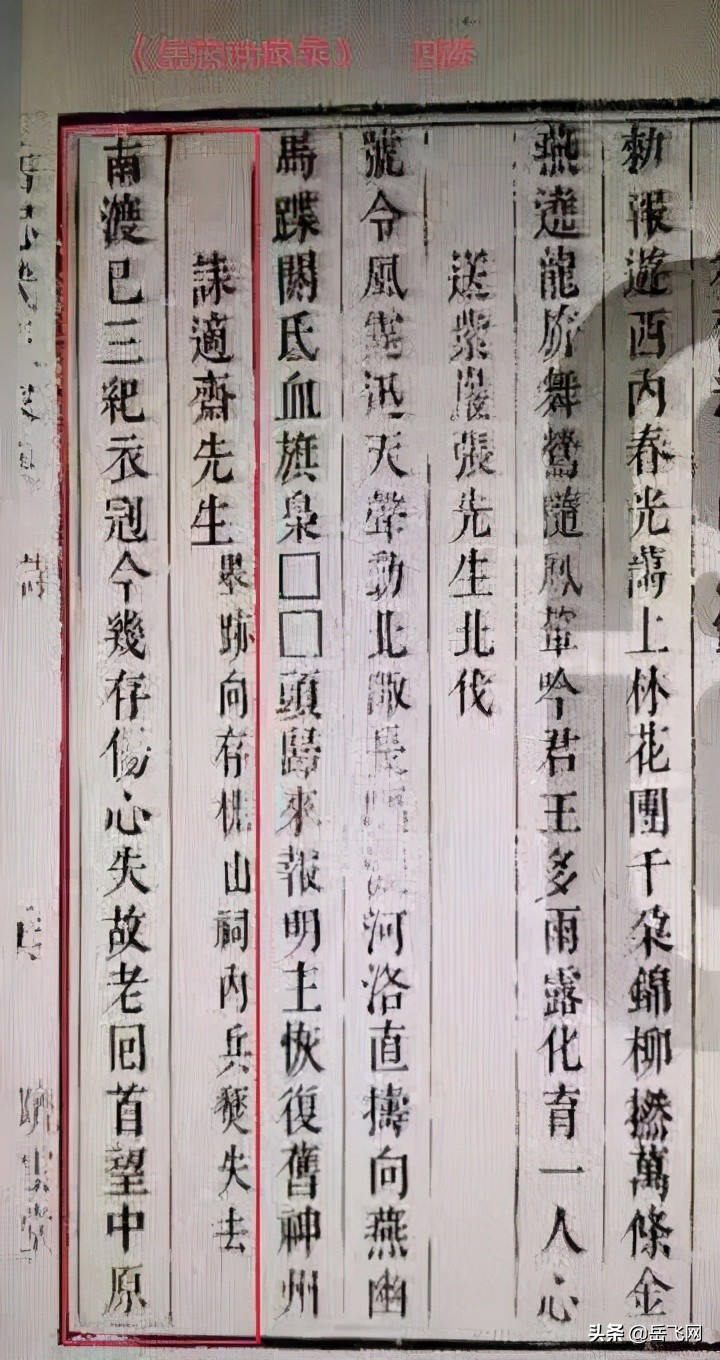 勑報遊西內春光藹上林花團千朵錦柳撚萬條金
燕遶龍旂舞鶯隨鳳輦吟君王多雨露化育一人心
送紫巖張先生北伐
號令風霆迅天聲動北陬長河洛直擣向燕幽
馬蹀閼氏血旗梟□□頭歸來報明主恢復舊神州
誄適齋先生 墨跡向存桃山祠內兵燹失去
南渡已三紀衣冠今幾存傷心失故老回首望中原
头条 @岳飞网